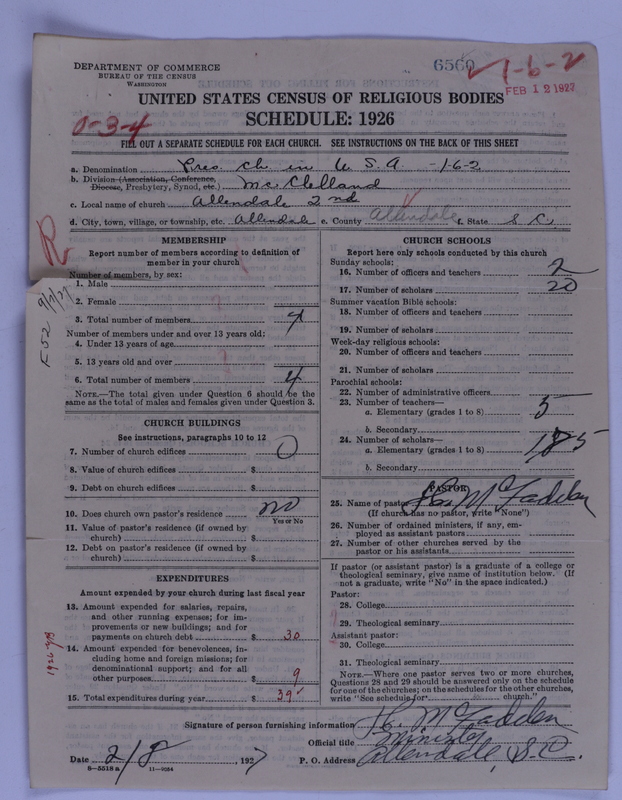 DEPARTMENT OF COMMERCE
BUREAU OF THE CENSUS
WASHINGTON
6560
1-6-2
FEB 12 1927
UNITED STATES CENSUS OF RELIGIOUS BODIES
SCHEDULE: 1926
0-3-4
FILL OUT A SEPARATE SCHEDULE FOR EACH CHURCH. SEE INSTRUCTIONS ON THE BACK OF THIS SHEET
a. Denomination Pres. Ch. in U S. A. -1-6-2
b. Division (Association, Conference,
Diocese, Presbytery, Synod, etc.) Mc Clelland
c. Local name of church Allendale 2nd
d. City, town, village, or township, etc. Allendale e. County Allendale f. State S C.
R
9/7/27
F52
MEMBERSHIP
Report number of members according to definition of
member in your church
Number of members, by sex:
1. Male
2. Female
3. Total number of members 4
Number of members under and over 13 years old:
4. Under 13 years of age
5. 13 years old and over
6. Total number of members 4
NOTE.—The total given under Question 6 should be the
same as the total of males and females given under Question 3.
CHURCH BUILDINGS
See instructions, paragraphs 10 to 12
7. Number of church edifices 0
8. Value of church edifices $
9. Debt on church edifices $
10. Does church own pastor's residence no
Yes or No
11. Value of pastor's residence (if owned by
church) $
12. Debt on pastor's residence (if owned by
church) $
EXPENDITURES
Amount expended by your church during last fiscal year
13. Amount expended for salaries, repairs,
and other running expenses; for im-
provements or new buildings; and for
payments on church debt $ 30
14. Amount expended for benevolences, in-
cluding home and foreign missions; for
denominational support; and for all
other purposes $ 9
15. Total expenditures during year $ 39
CHURCH SCHOOLS
Report here only schools conducted by this church
Sunday schools:
16. Number of officers and teachers 2
17. Number of scholars 20
Summer vacation Bible schools:
18. Number of officers and teachers
19. Number of scholars
Week-day religious schools:
20. Number of officers and teachers
21. Number of scholars
Parochial schools:
22. Number of administrative officers
23. Number of teachers—
a. Elementary (grades 1 to 8) 5
b. Secondary
24. Number of scholars—
a. Elementary (grades 1 to 8) 185
b. Secondary
PASTOR
25. Name of pastor McFadden
(If church has no pastor, write "None")
26. Number of ordained ministers, if any, em-
ployed as assistant pastors
27. Number of other churches served by the
pastor or his assistants
If pastor (or assistant pastor) is a graduate of a college or
theological seminary, give name of institution below. (If
not a graduate, write "No" in the space indicated.)
Pastor:
28. College
29. Theological seminary
Assistant pastor:
30. College
31. Theological seminary
NOTE.—Where one pastor serves two or more churches,
Questions 28 and 29 should be answered only on the schedule
for one of the churches; on the schedules for the other churches,
write "See schedule for church."
Signature of person furnishing information McFadden
Official title Minister
Date 2/8, 1927 P. O. Address Allendale, S.C.
8—5518 a 11—9024